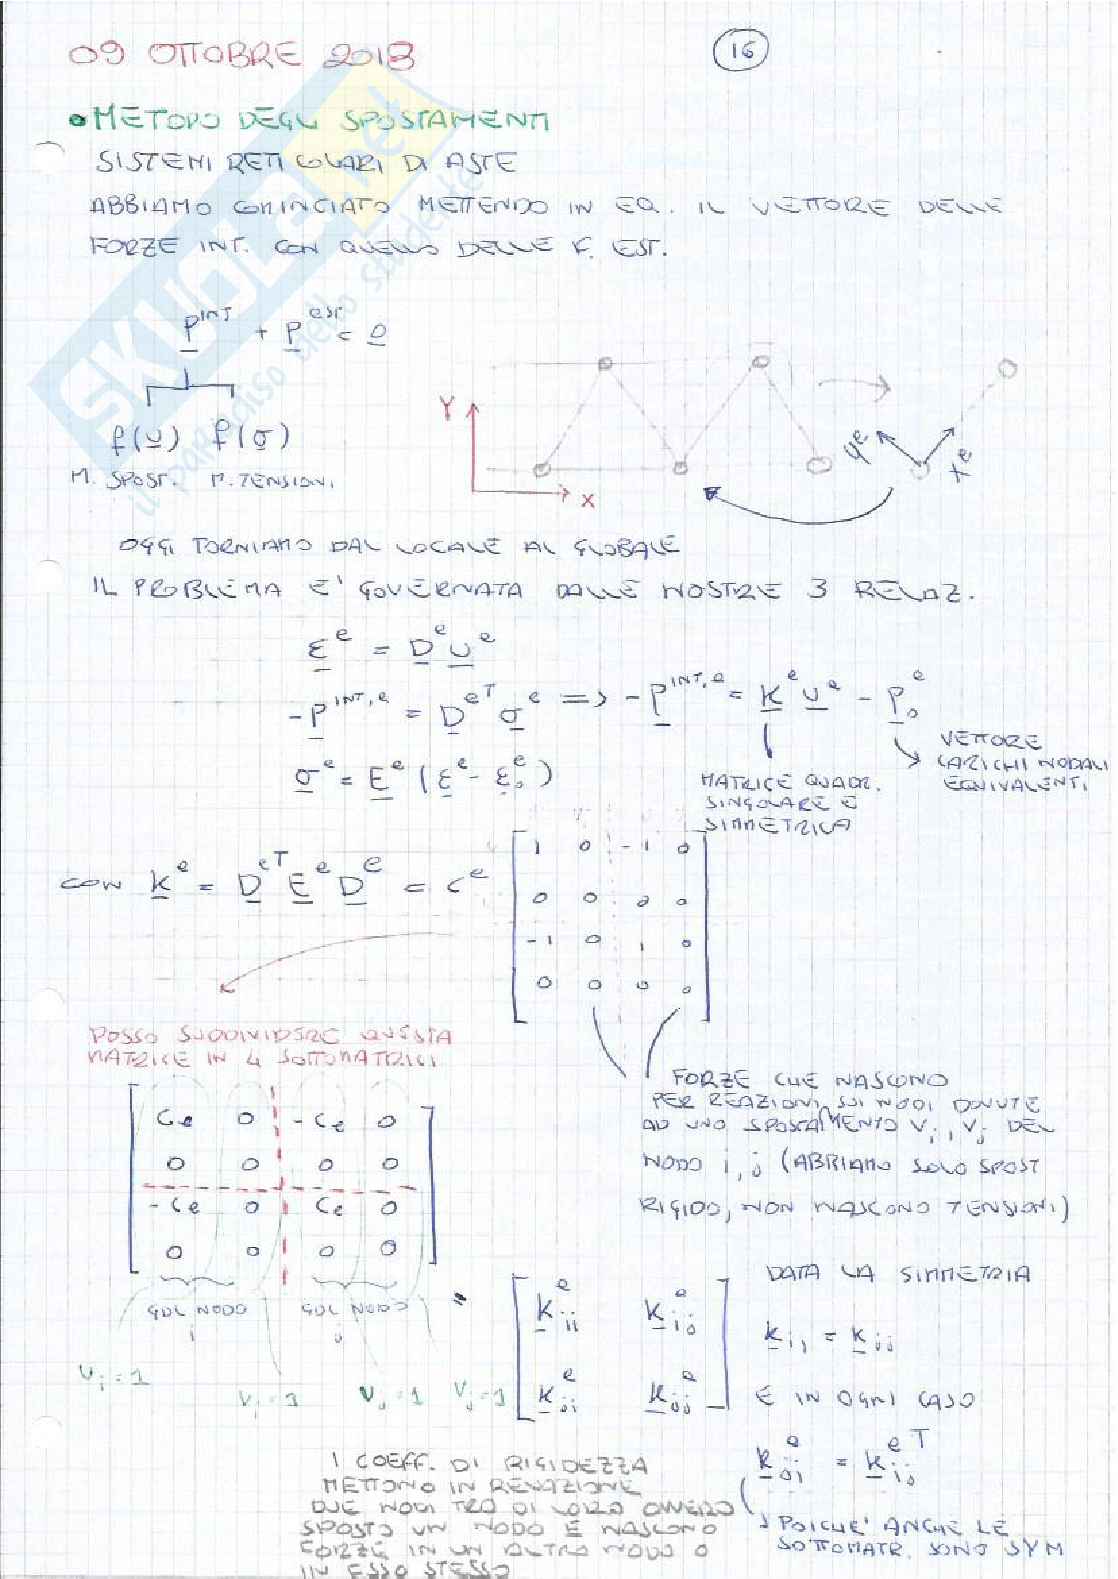 09 OTTOBRE 2018
16
• METODO DEGLI SPOSTAMENTI
SISTEMI RETICOLARI DI ASTE
ABBIAMO COMINCIATO METTENDO IN EQ. IL VETTORE DELLE
FORZE INT. CON QUELLO DELLE F. EST.
P^INT + P^EST = 0
f(u) f(σ)
M. SPOST. M. TENSIONI
Y
X
y^e
x^e
OGGI TORNIAMO DAL LOCALE AL GLOBALE
IL PROBLEMA E' GOVERNATA DALLE NOSTRE 3 RELAZ.
ε^e = D^e u^e
-P^INT,e = D^eT σ^e => -P^INT,e = K^e u^e - P_0^e
σ^e = E^e (ε^e - ε_0^e)
VETTORE
CARICHI NODALI
EQUIVALENTI
MATRICE QUADR.
SINGOLARE E
SIMMETRICA
CON K^e = D^eT E^e D^e = C^e
1 0 -1 0
0 0 0 0
-1 0 1 0
0 0 0 0
POSSO SUDDIVIDERE QUESTA
MATRICE IN 4 SOTTOMATRICI
Ce 0 -Ce 0
0 0 0 0
-Ce 0 Ce 0
0 0 0 0
GDL NODO i
GDL NODO j
FORZE CHE NASCONO
PER REAZIONI SUI NODI DOVUTE
AD UNO SPOSTAMENTO Vi, Vj DEL
NODO i, j (ABBIAMO SOLO SPOST
RIGIDO, NON NASCONO TENSIONI)
= K_ii^e K_ij^e
K_ji^e K_jj^e
DATA LA SIMMETRIA
K_ij = K_ji
E IN OGNI CASO
K_ji^e = K_ij^eT
POICHE' ANCHE LE
SOTTOMATR. SONO SYM
Ui=1
Vi=1
Uj=1
Vj=1
I COEFF. DI RIGIDEZZA
METTONO IN RELAZIONE
DUE NODI TRA DI LORO OVVERO
SPOSTO UN NODO E NASCONO
FORZE IN UN ALTRO NODO O
IN ESSO STESSO
SKUOLA.net
il paradiso dello studente